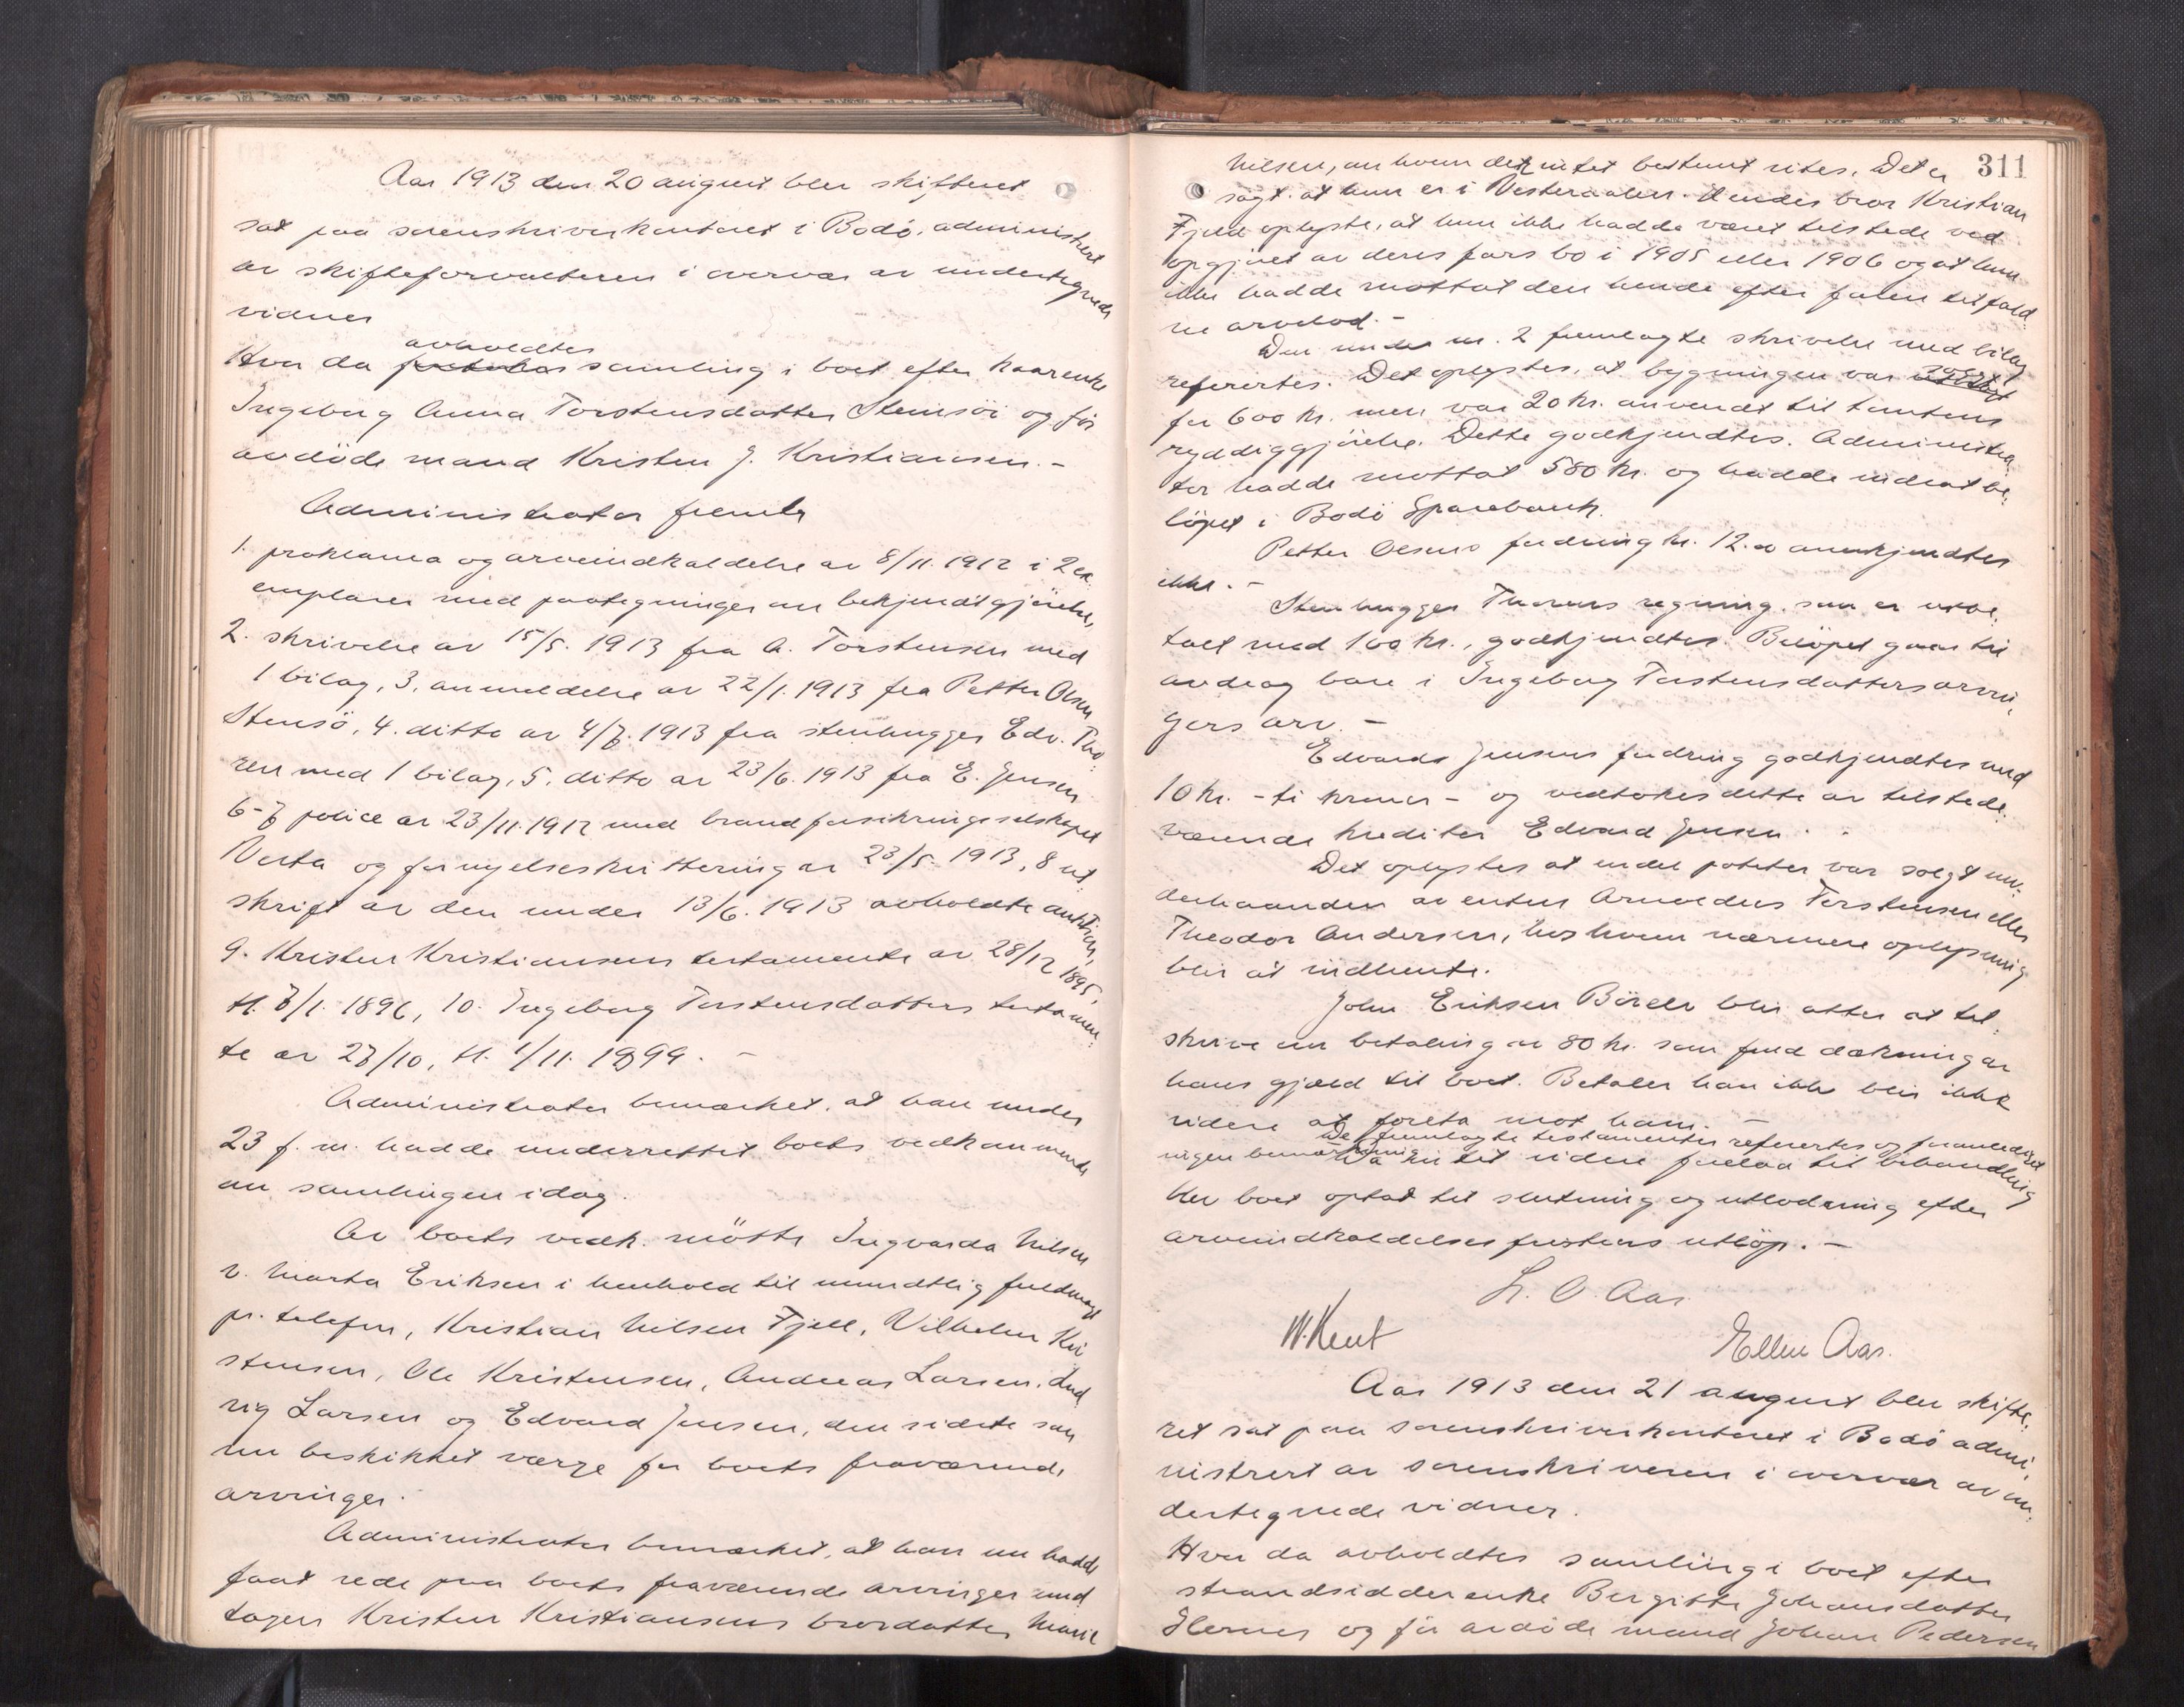 Aar 1913 den 20 august blev skifteret
sat paa sorenskriverkontoret i Bodö, administrert
av skifteforvalteren i overvær av undertegnede
vidner
avholdtes
Hvor da samling i boet efter kaarenke
Ingeborg Anna Torstensdatter Stensöi og før
avdöde mand Kristen J. Kristiansen. -
Administrator fremla
1. proklama og arveindkaldelse av 8/11. 1912 i 2 ex
emplarer med paategninger om bekjendtgjörelse,
2. skrivelse av 15/5. 1913 fra A. Torstensen med
1 bilag, 3, anmeldelse av 22/1. 1913 fra Petter Olsen
Stensö, 4. ditto av 4/7. 1913 fra stenhugger Edv. Tho-
ren med 1 bilag, 5. ditto av 23/6. 1913 fra E. Jensen
6-7 police av 23/11. 1912 med brandforsikringsselskapet
Vesta og fornyelseskvittering av 23/5. 1913, 8 ut-
skrift av den under 13/6. 1913 avholdte auktion,
9. Kristen Kristiansens testamente av 28/12 1895,
tl. 7/1. 1896, 10. Ingeborg Torstensdatters testamen-
te av 27/10, tl. 1/11. 1899. -
Administrator bemærket, at han under
23 f. m. hadde underrettet boets vedkommende
om samlingen idag.
Av boets vedk. mötte Ingvarda Nilsen
v. Marta Eriksen i henhold til mundtlig fuldmagt
pr. telefon, Kristian Nilsen Fjell, Vilhelm Kri
stensen, Ole Kristensen, Andreas Larsen, Lud
vig Larsen og Edvard Jensen, den sidste som
nu beskikket værge for boets fraværende
arvinger.
Administrator bemærket, at han nu hadde
faat rede paa boets fraværende arvinger und
tagen Kristen Kristiansens brordatter Marie
311
Nilsen, om hvem der intet bestemt vites. Det er
sagt at hun er i Vesteraalen. Hendes bror Kristian
Fjeld oplyste, at hun ikke hadde været tilstede ved
opgjöret av deres fars bo i 1905 eller 1906 og at hun
ikke hadde mottat den hende efter faren tilfald
ne arvelod. -
Den under nr. 2 fremlagte skrivelse med bilag
refereertes. Det oplystes, at bygningen var solgt
for 600 kr. men var 20 kr. anvendt til tomtens
ryddiggjörelse. Dette godkjendtes. Administra
tor hadde mottat 580 kr. og hadde indsat be-
löpet i Bodö Sparebank.
Petter Olsens fordring kr. 12.00 anerkjendtes
ikke. -
Stenhugger Thorens regning, som er utbe-
talt med 100 kr., godkjendtes. Belöpet gaar til
avdrag bare i Ingeborg Torstensdatters arvin-
gers arv. -
Edvards Jensens fordring godkjendtes med
10 kr. - ti kroner - og vedtokes dette av tilstede-
værende kreditor Edvard Jensen.
Det oplystes at endel poteter var solgt un-
derhaanden av enten Arnoldus Torstensen eller
Theodor Andersen, hos hvem nærmere oplysning
blir at indhente.
John Eriksen blir atter at til-
skrive om betaling av 80 kr. som fuld dækning av
hans gjæld til boet. Betaler han ikke blir ikke
videre at foreta mot ham. -
De fremlagte testamenter refereertes og foranlediget
ingen bemærkning
Da intet videre forelaa til behandling
blev boet optat til slutning og utlodning efter
arveindkaldelsesfristens utlöp. -
L. O. Aas
W. Kent
Ellen Aas.
Aar 1913 den 21 august blev skifte-
ret sat paa sorenskriverkontoret i Bodö admi-
nistrert av sorenskriveren i overvær av un-
dertegnede vidner.
Hvor da avholdtes samling i boet efter
strandsidderenke Bergitte Johansdatter
og før avdöde mand Johan Pedersen